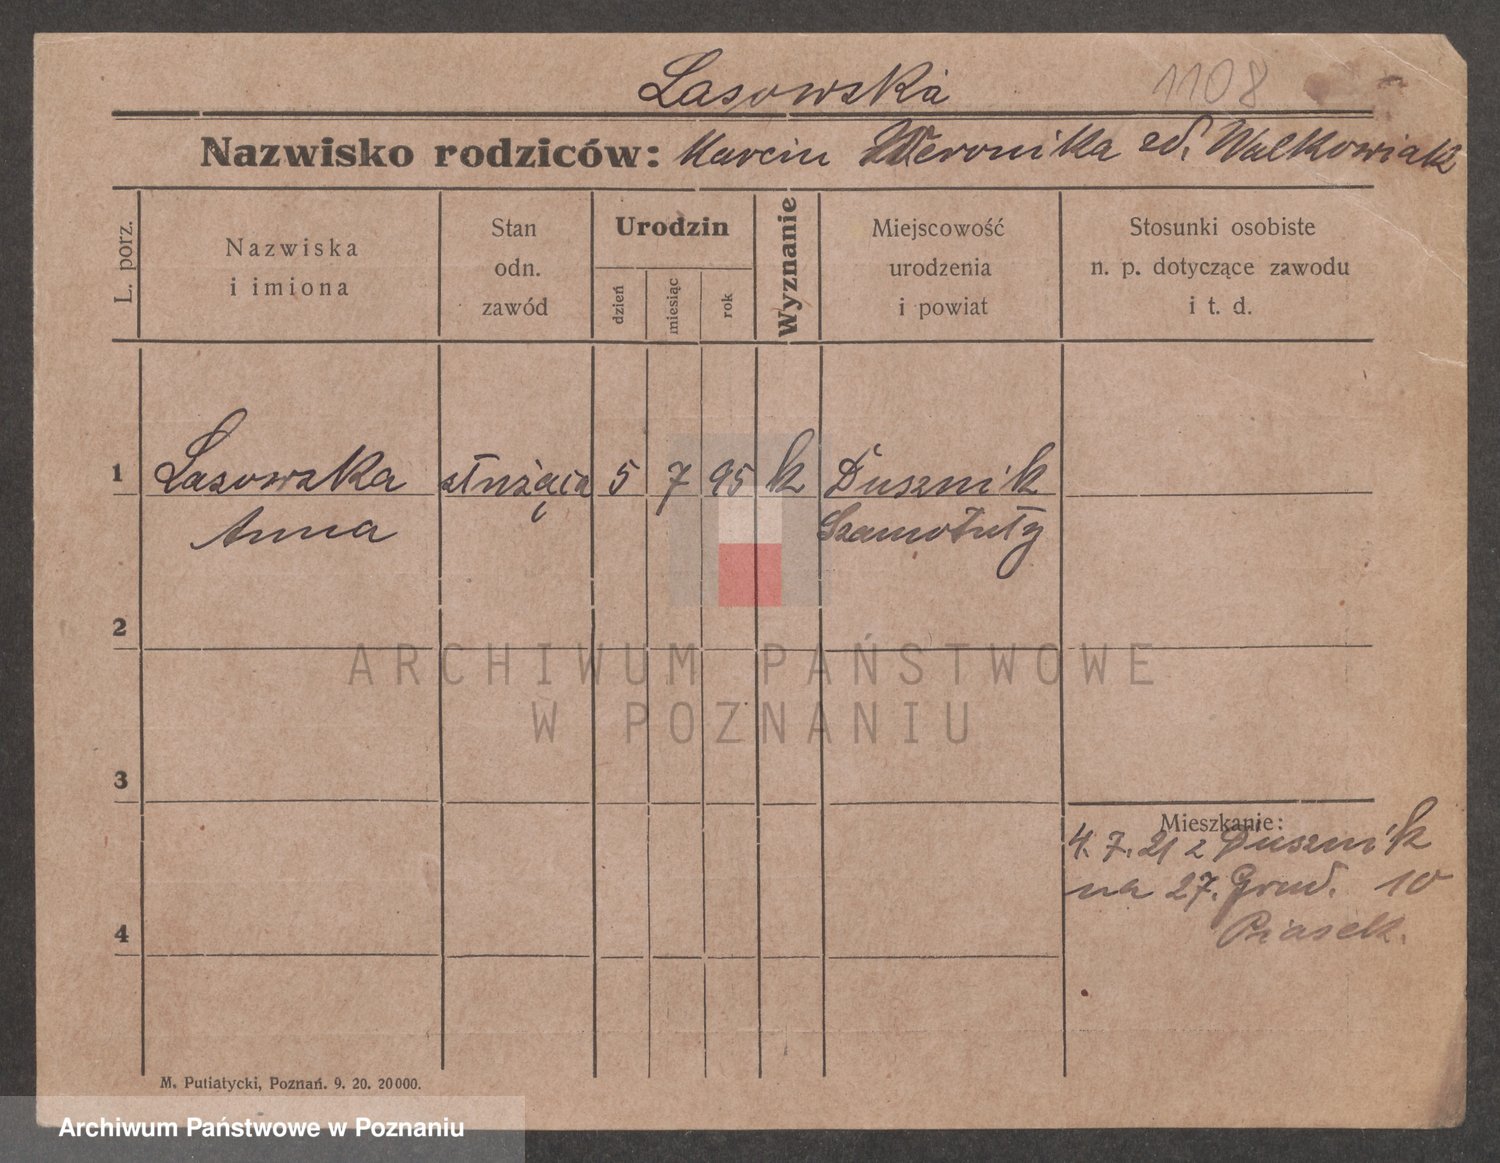 Lasowska
1108
Nazwisko rodziców: Marcin Weronika zd. Walkowiak
L. porz.
Nazwiska
i imiona
Stan
odn.
zawód
Urodzin
dzień
miesiąc
rok
Wyznanie
Miejscowość
urodzenia
i powiat
Stosunki osobiste
n. p. dotyczące zawodu
i t. d.
1 Lasowska służąca 5 7 95 k Dusznik
Anna Szamotuły
2
ARCHIWUM PAŃSTWOWE
W POZNANIU
3
Mieszkanie:
4. 7. 21 z Dusznik
na 27. Grud. 10
4
Piasek.
M. Putiatycki, Poznań. 9. 20. 20000.
Archiwum Państwowe w Poznaniu